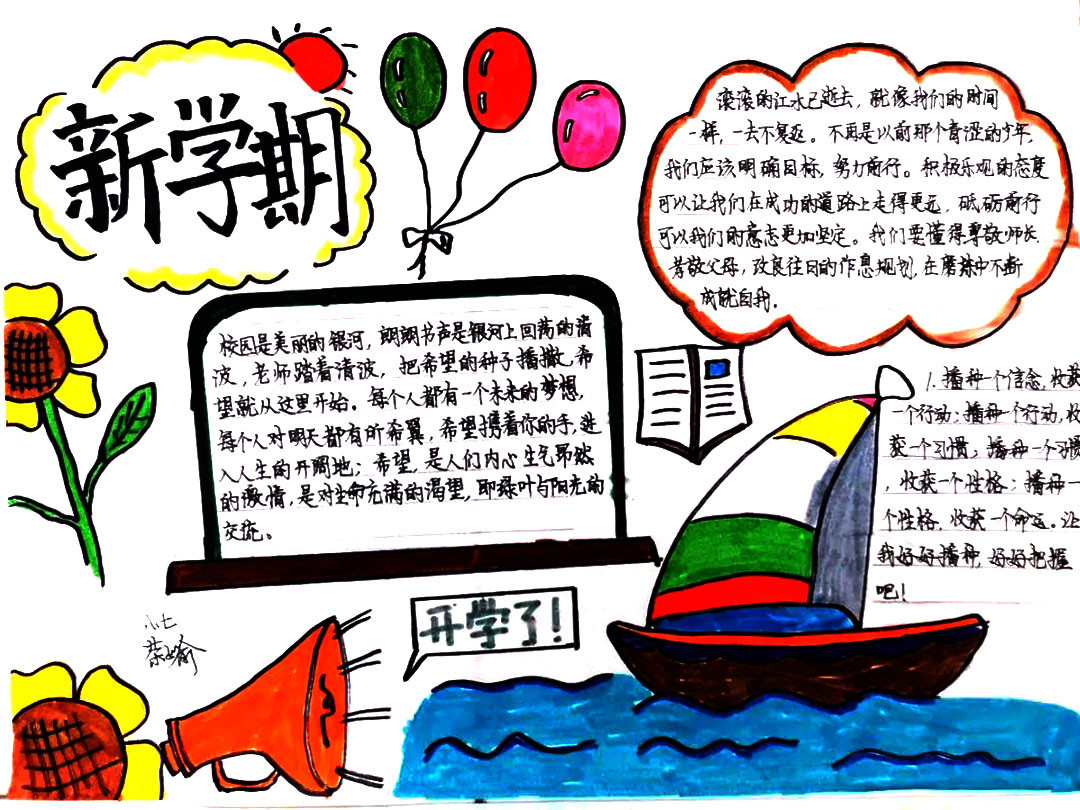 新学期
滚滚的江水已逝去，就像我们的时间
一样，一去不复返。不再是以前那个青涩的少年，
我们应该明确目标，努力前行。积极乐观的态度
可以让我们在成功的道路上走得更远，砥砺前行
可以我们的意志更加坚定。我们要懂得尊敬师长
孝敬父母，改良往日的作息规划，在磨练中不断
成就自我。
校园是美丽的银河，朗朗书声是银河上回荡的清
波，老师踏着清波，把希望的种子播撒，希
望就从这里开始。每个人都有一个未来的梦想，
每个人对明天都有所希冀，希望携着你的手，进
入人生的开阔地；希望，是人们内心生气昂然
的激情，是对生命充满的渴望，耶绿叶与阳光的
交流。
1.播种一个信念，收获
一个行动；播种一个行动，收
获一个习惯；播种一个习惯
，收获一个性格；播种一
个性格，收获一个命运。让
我好好播种，好好把握
吧！
开学了！